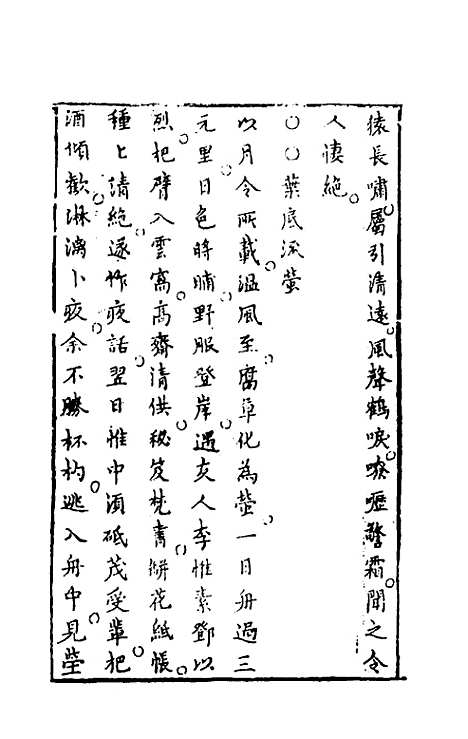 猿長嘯屬引清遠風聲鶴唳嘹嚦警霜聞之令
人悽絶
○○葉底流螢
以月令所載溫風至腐草化為螢一日舟過三
元里日色時晡野服登岸遇友人李惟素鄧以
烈把臂入雲窩高齋清供秘笈梵書缾花紙帳
種匕清絶遂作夜話翌日惟中湏砥茂受輩把
酒傾歡淋漓卜夜余不勝杯杓逃入舟中見螢